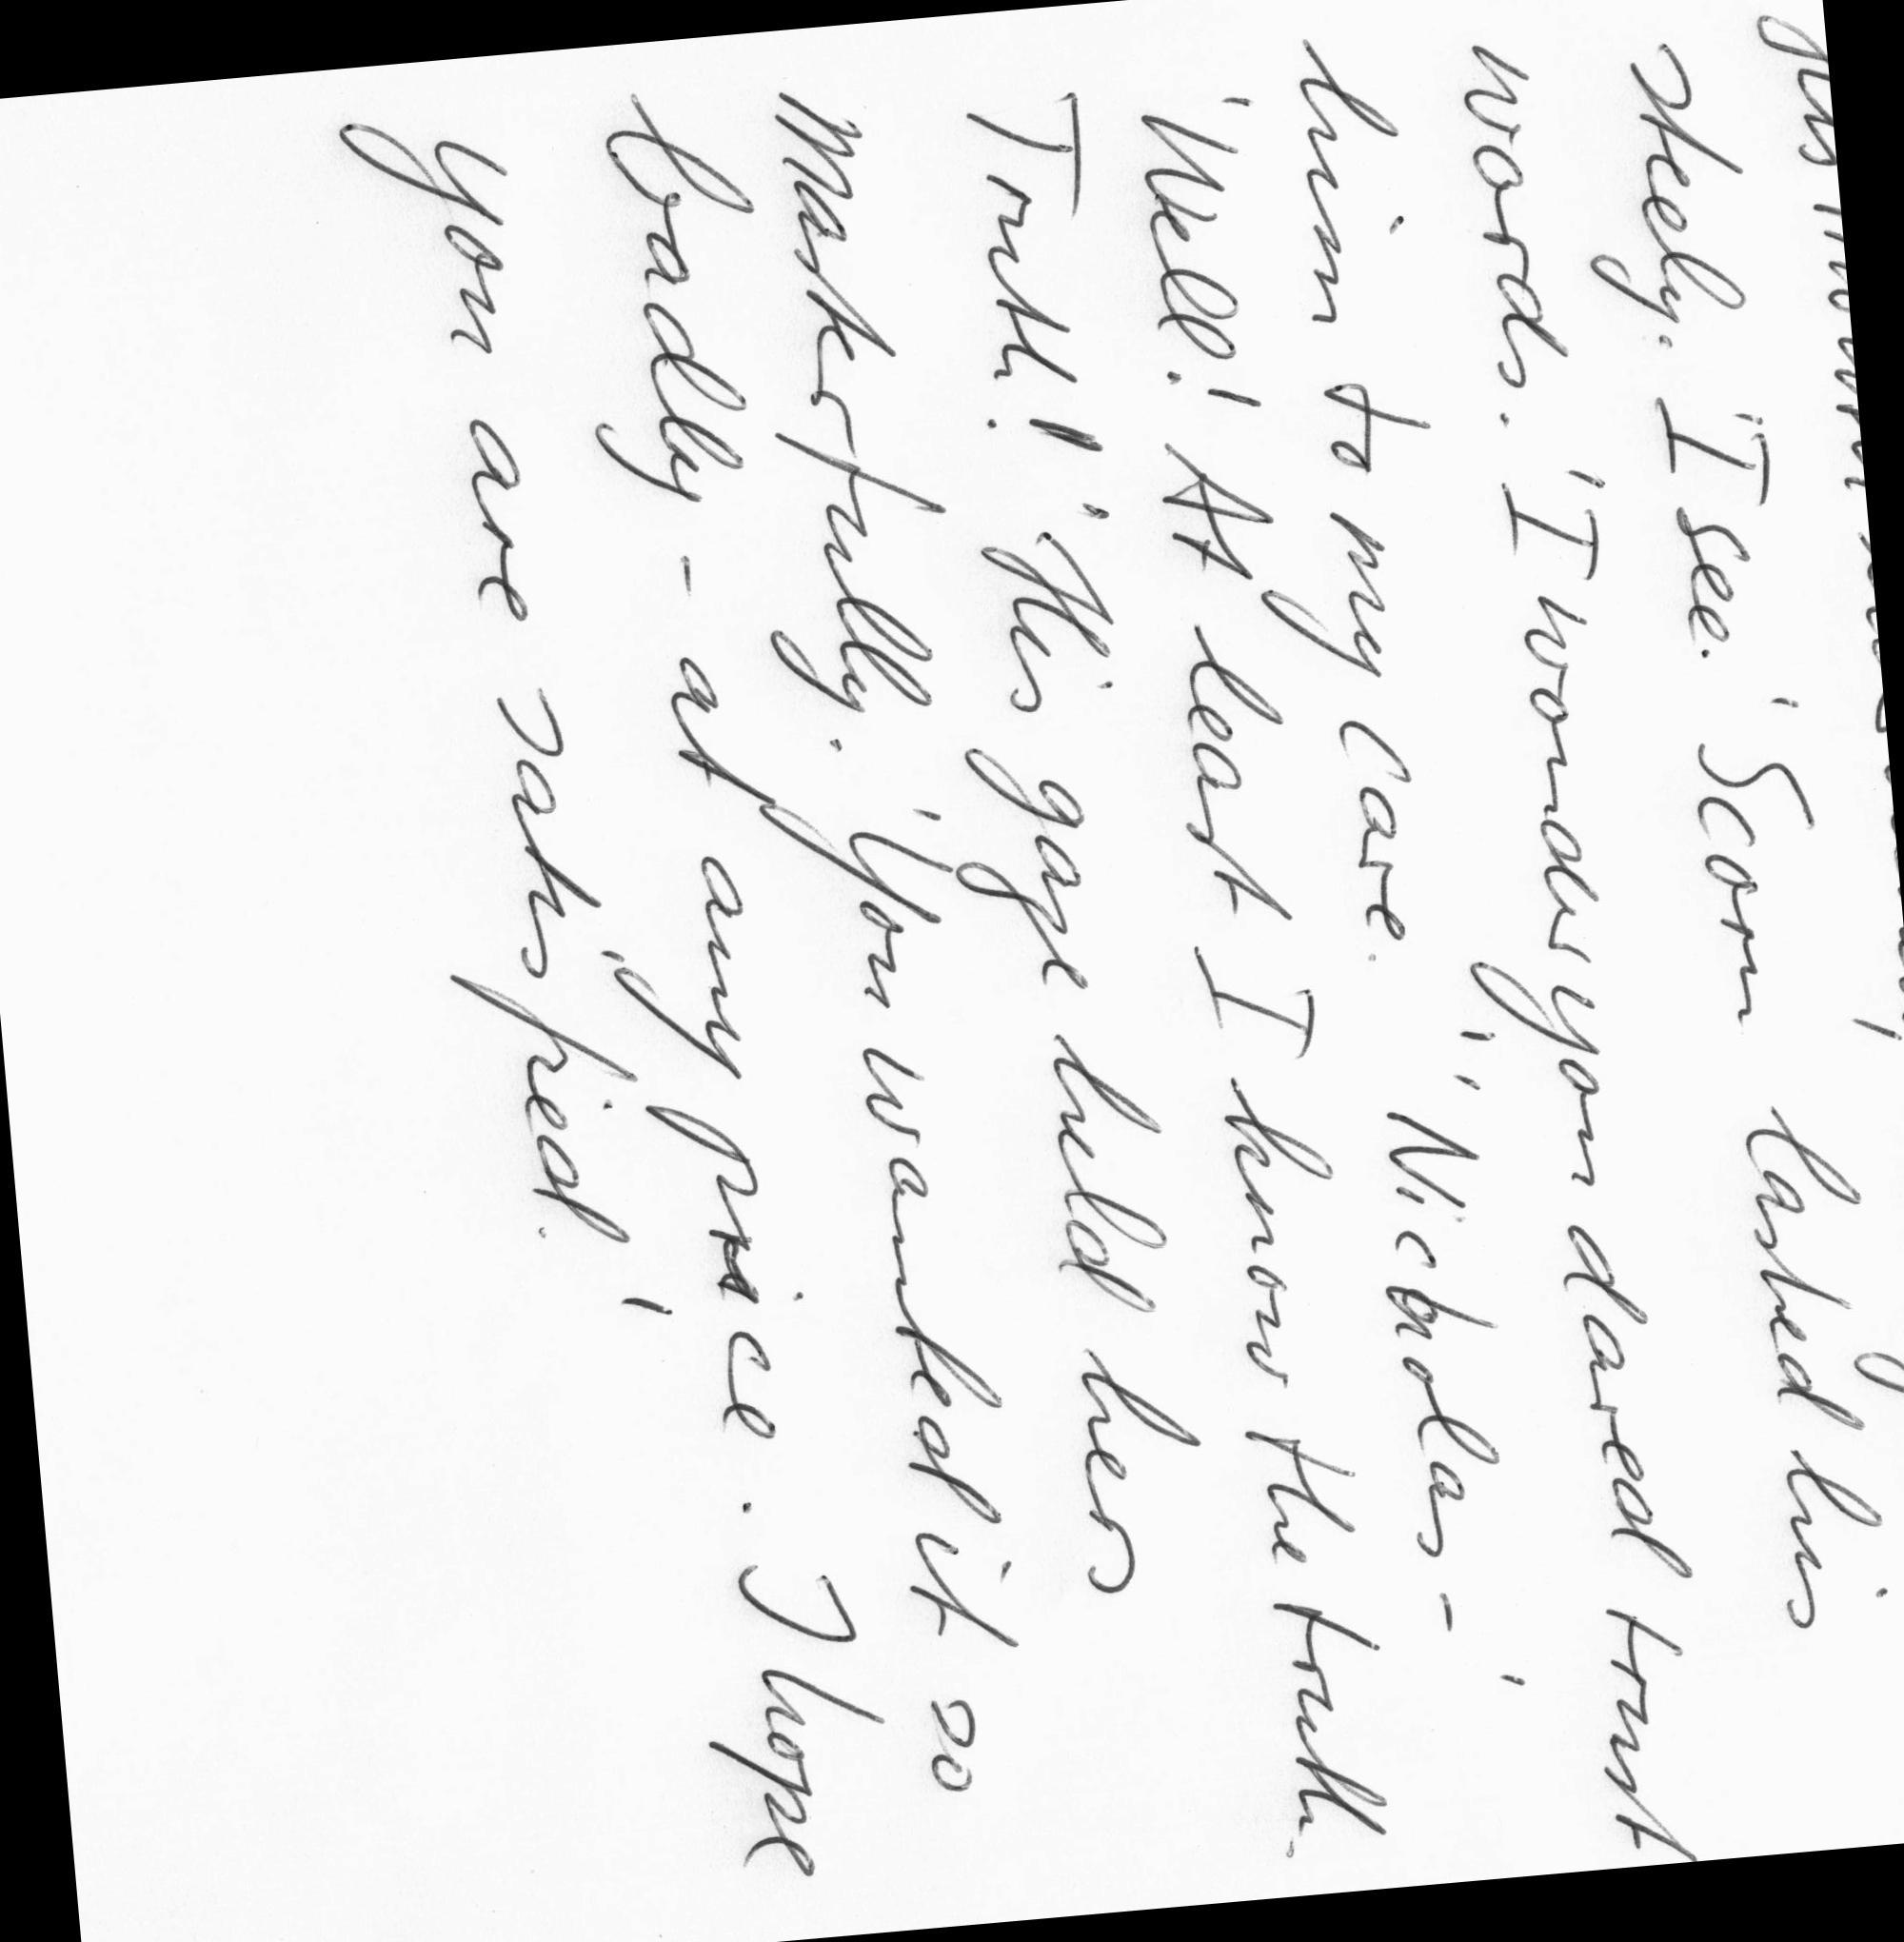 steely. 'I see.' Scorn lashed his
words. 'I wonder you dared trust
him to my care.' 'Nicholas - '
'Well! At least I know the truth.
Truth!' His gaze held hers
masterfully. 'You wanted it so
badly - at any price. I hope
you are satisfied.'